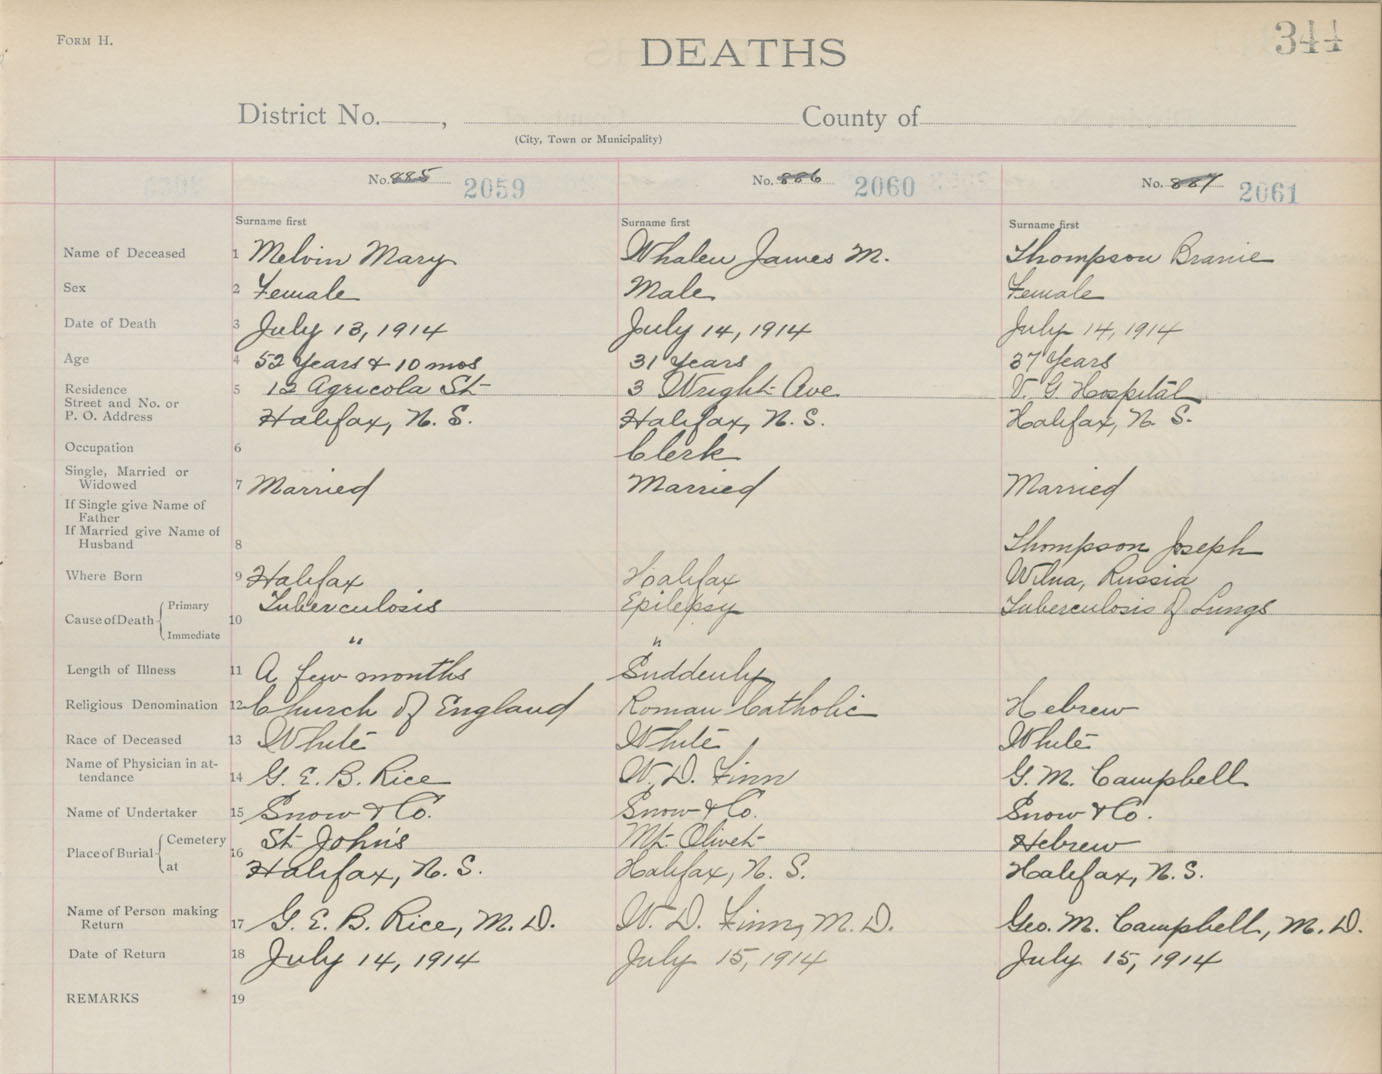 FORM H.
DEATHS
344
District No. , County of
(City, Town or Municipality)
No. 885 2059 No. 886 2060 No. 887 2061
Surname first Surname first Surname first
Name of Deceased 1 Melvin Mary Whalen James M. Thompson Branie
Sex 2 Female Male Female
Date of Death 3 July 13, 1914 July 14, 1914 July 14, 1914
Age 4 52 Years & 10 mos 31 Years 37 Years
Residence 5 12 Agricola St 3 Wright Ave V. G. Hospital
Street and No. or
P. O. Address Halifax, N. S. Halifax, N. S. Halifax, N. S.
Occupation 6 Clerk
Single, Married or
Widowed 7 Married Married Married
If Single give Name of
Father
If Married give Name of
Husband 8 Thompson Joseph
Where Born 9 Halifax Halifax Wilna, Russia
Cause of Death Primary 10 Tuberculosis Epilepsy Tuberculosis of Lungs
Immediate " "
Length of Illness 11 A few months Suddenly
Religious Denomination 12 Church of England Roman Catholic Hebrew
Race of Deceased 13 White White White
Name of Physician in at-
tendance 14 G. E. B. Rice W. D. Finn G. M. Campbell
Name of Undertaker 15 Snow & Co. Snow & Co. Snow & Co.
Place of Burial Cemetery 16 St John's Mt. Olivet Hebrew
at Halifax, N. S. Halifax, N. S. Halifax, N. S.
Name of Person making
Return 17 G. E. B. Rice, M. D. W. D. Finn, M. D. Geo. M. Campbell, M. D.
Date of Return 18 July 14, 1914 July 15, 1914 July 15, 1914
REMARKS 19